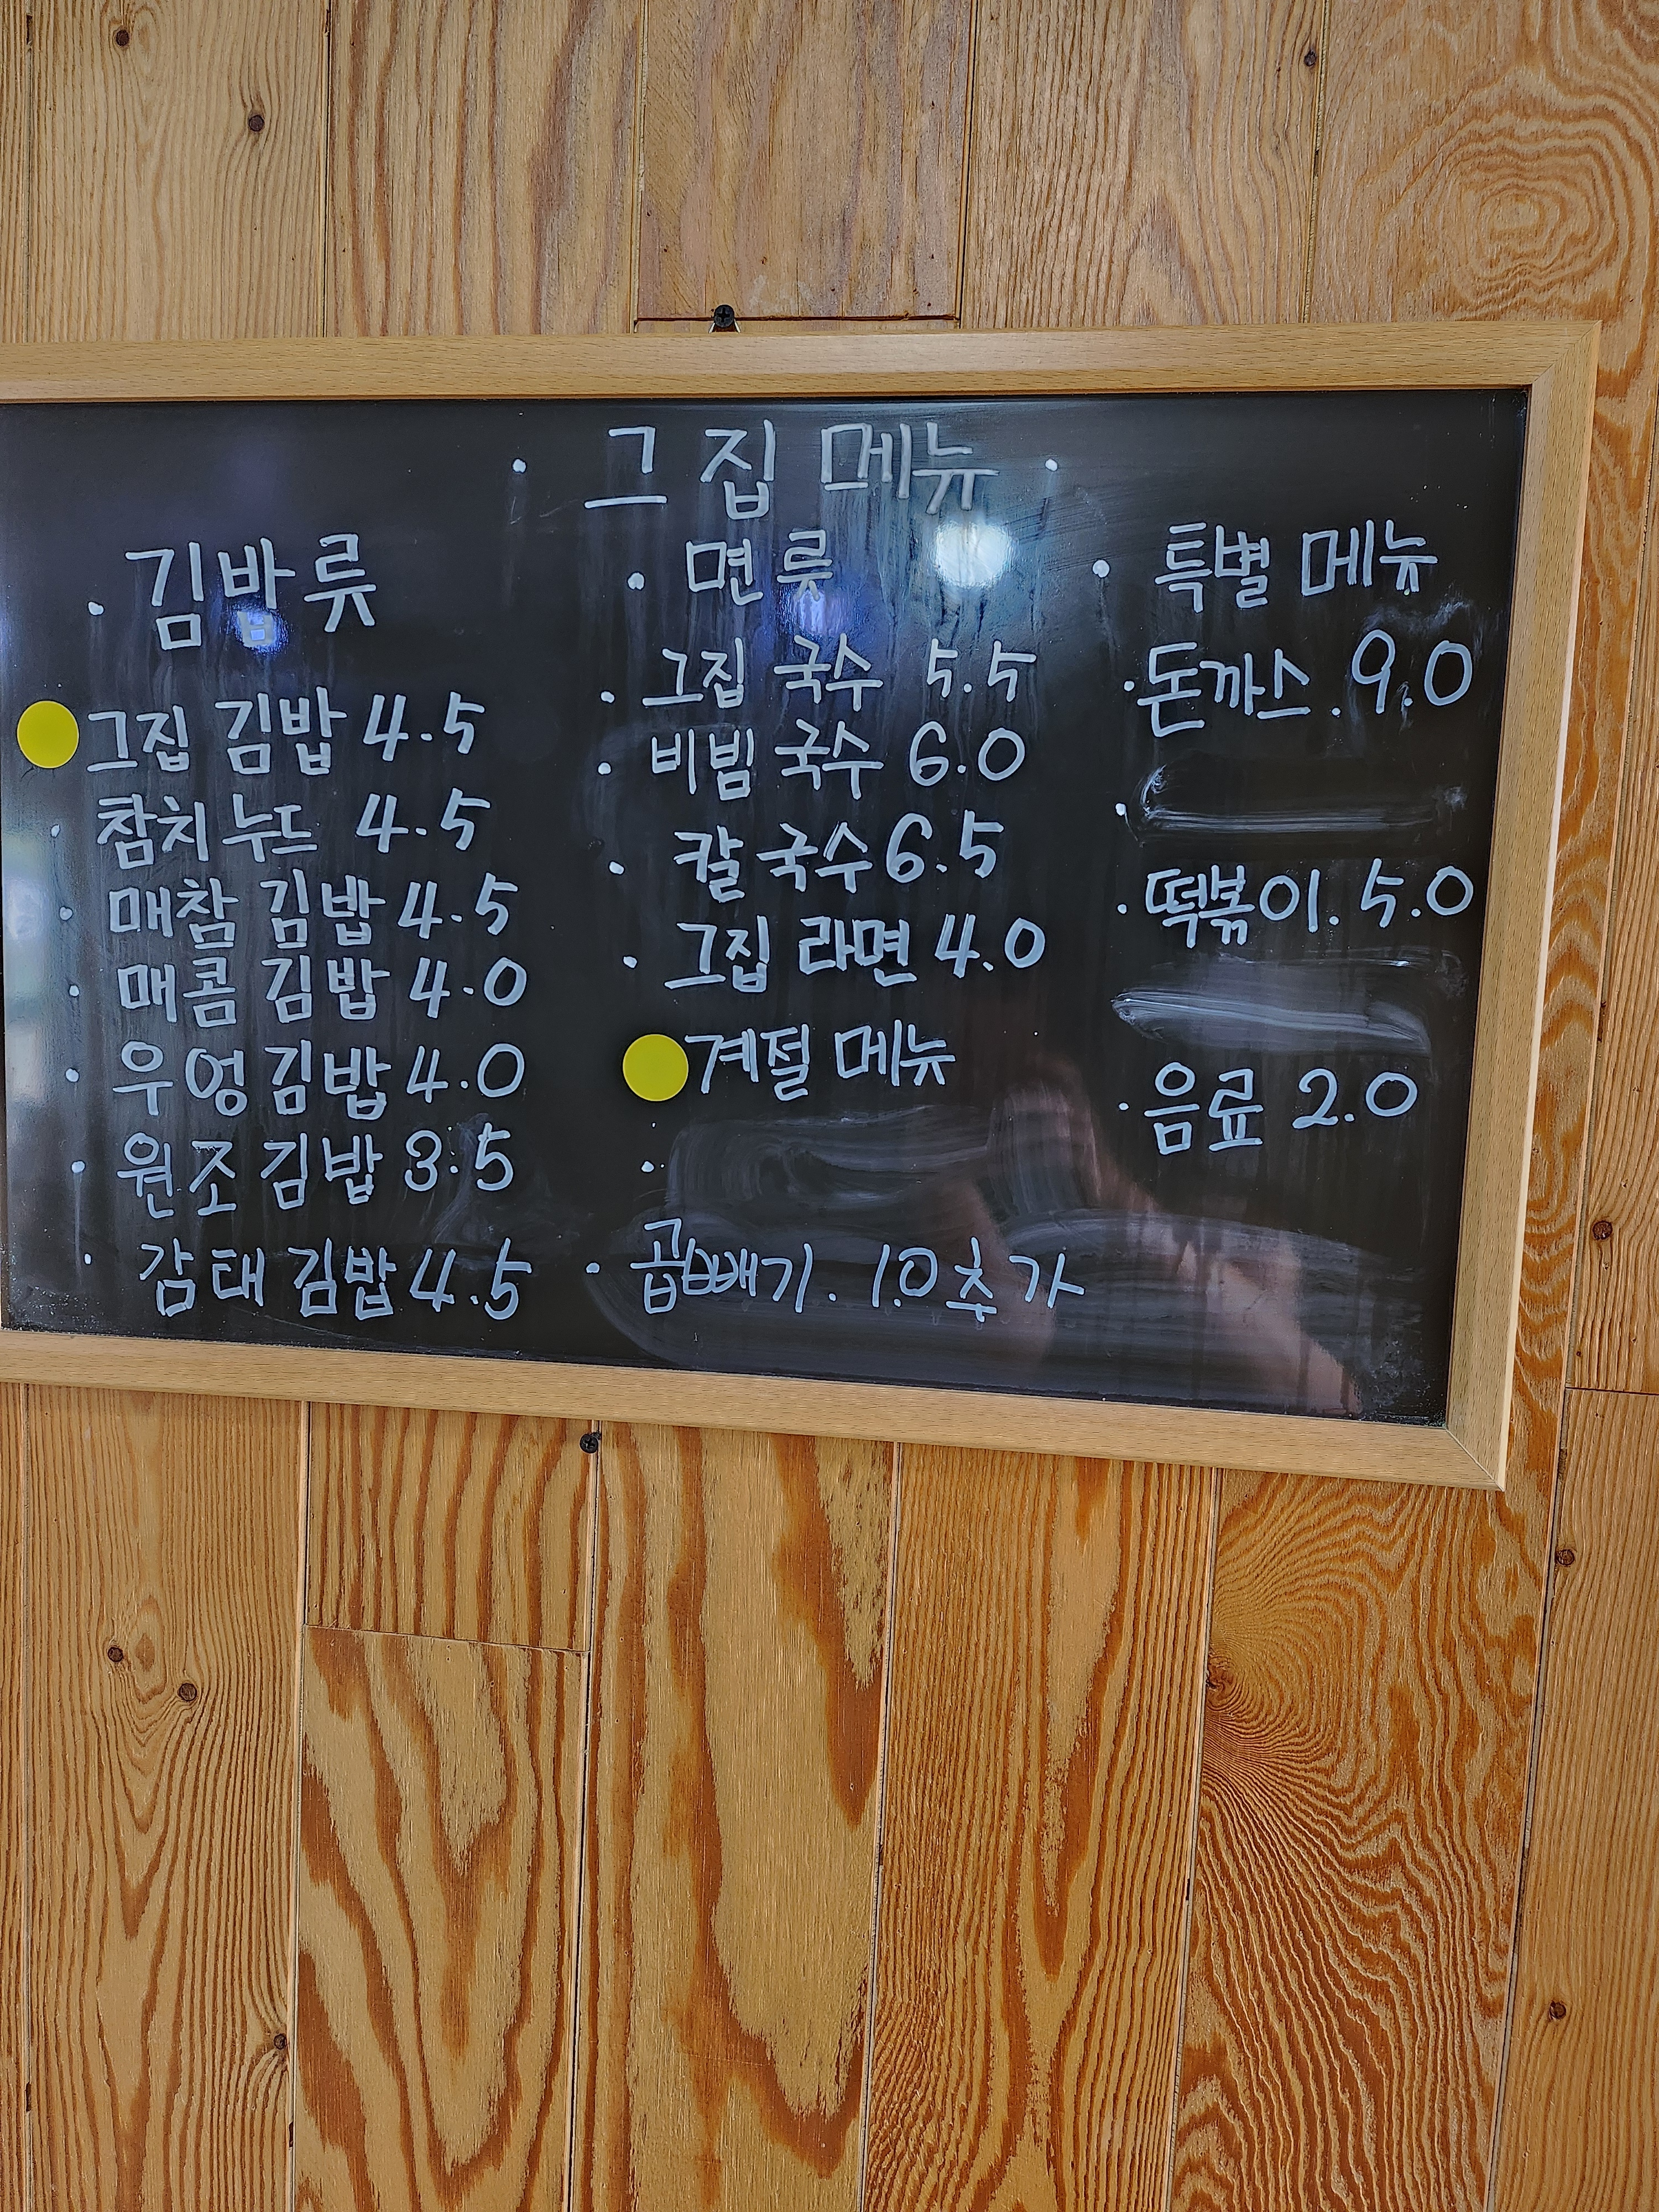 · 그집 메뉴 ·
· 김밥류
그집 김밥 4.5
· 참치누드 4.5
· 매참 김밥 4.5
· 매콤 김밥 4.0
· 우엉김밥 4.0
· 원조김밥 3.5
· 감태김밥 4.5
· 면류
· 그집 국수 5.5
· 비빔국수 6.0
· 칼국수 6.5
· 그집 라면 4.0
계절 메뉴
·
· 곱빼기. 1.0 추가
· 특별 메뉴
· 돈까스. 9.0
·
· 떡볶이. 5.0
· 음료 2.0